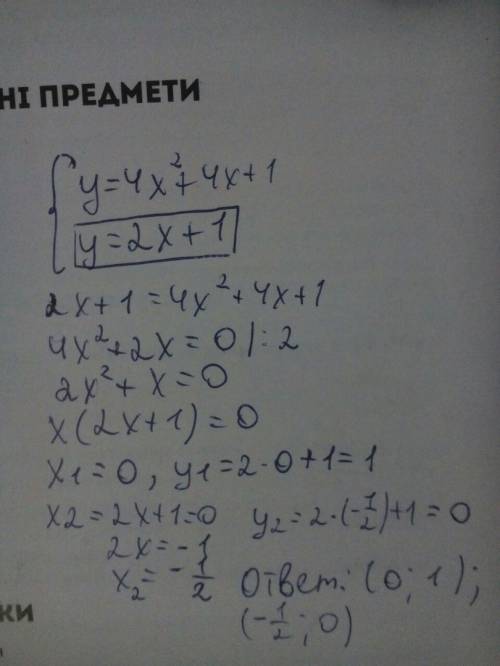 НІ ПРЕДМЕТИ
y=4x²+4x+1
y=2x+1
2x+1=4x²+4x+1
4x²+2x=0 |:2
2x²+x=0
x(2x+1)=0
x1=0, y1=2·0+1=1
x2=2x+1=0 y2=2·(-1/2)+1=0
2x=-1
x₂=-1/2 Ответ: (0; 1);
(-1/2; 0)
ки